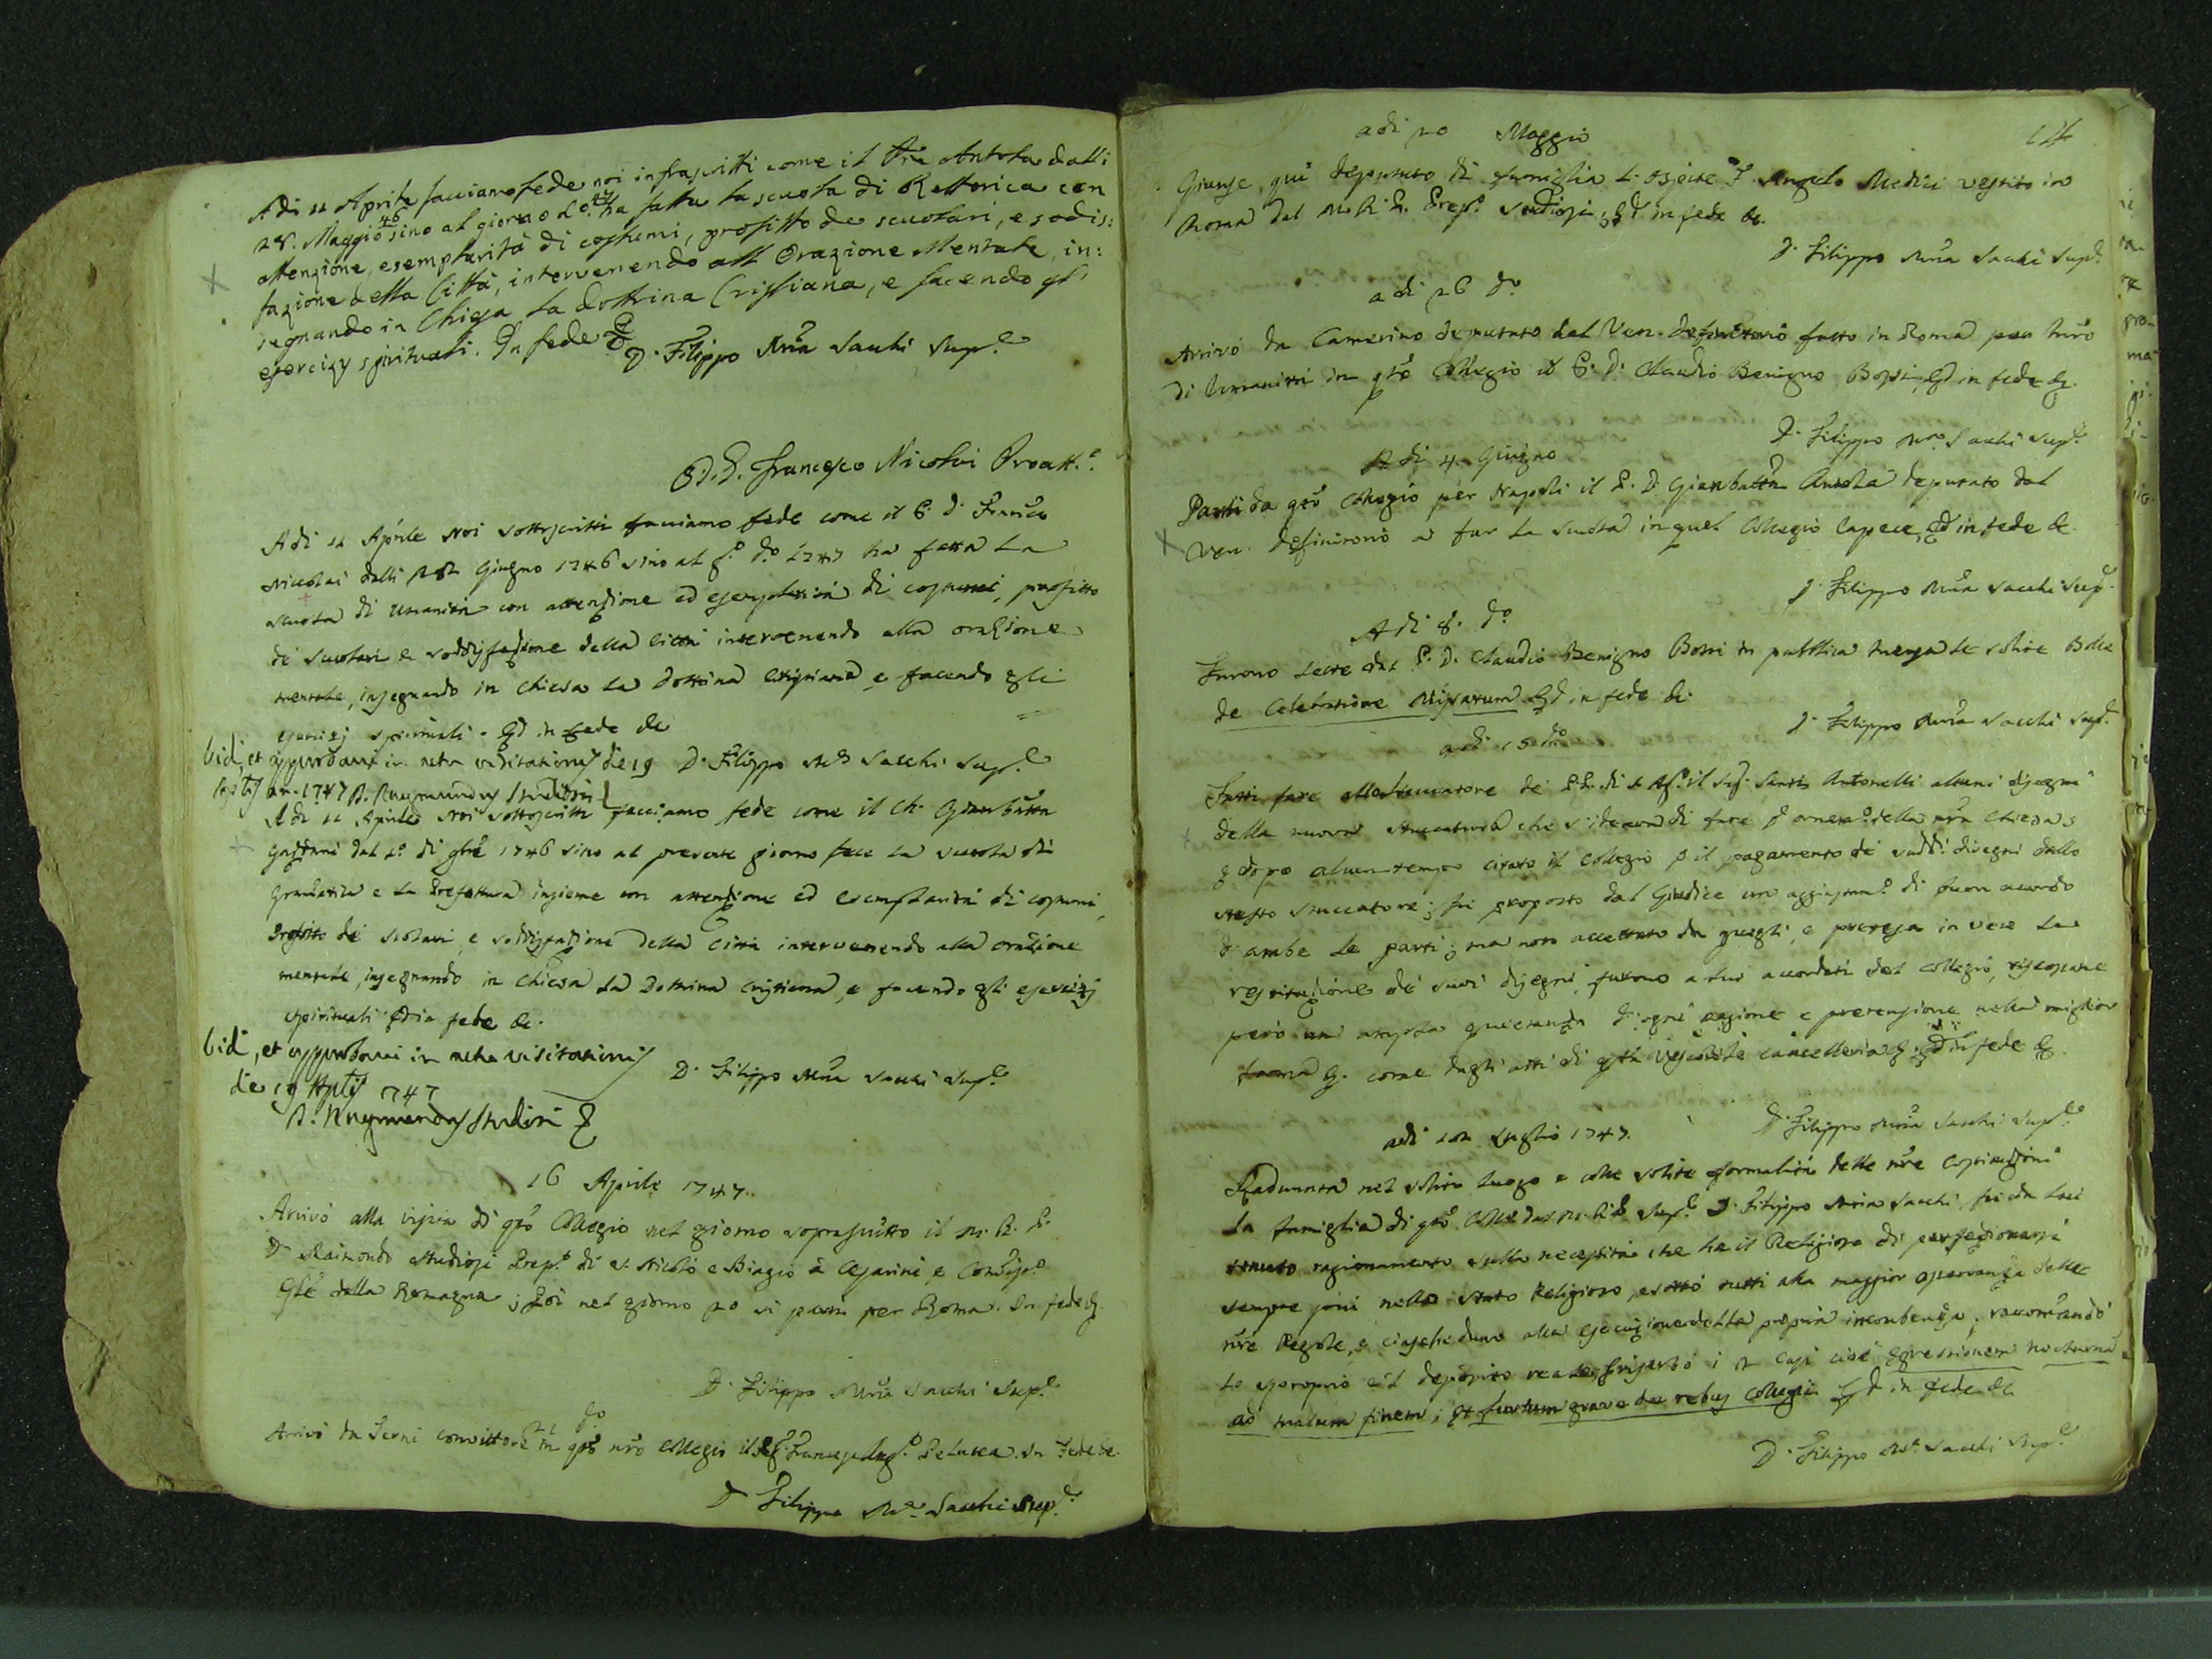 A di 11 Aprile facciamo fede noi infrascritti come il Antola dalli
28. Maggio 46 sino al giorno ha fatta la scuola di Rettorica con
attenzione, esemplarità di costumi, profitto de scuolari, e sodis:
fazione della Città, intervenendo all Orazione Mentale, in:
segnando in Chiesa la dottrina Cristiana, e facendo gl'
esercizy spirituali. In fede &
D. Filippo Mria Sacchi Supre
D. Francesco Nicolai Proatt.e
A di 11 Aprile Noi sottoscritti facciamo fede come il P. D. Franco
Niccolai dalli Giugno 1746 sino al do 1747 ha fatta la
scuola di Umanità con attenzione ed esemplarità di costumi, profitto
di scuolari e soddisfazione della Città intervenendo alla orazione
mentale, insegnando in Chiesa la dottrina Cristiana e facendo gli
esercizj spirituali. in fede &c
Vidi, et approbavi in actu visitationis die 19 D. Filippo Mra Sacchi Supre
Aprilis an. 1747 D. Raymundus Studiosi
A di 11 Aprile Noi sottoscritti facciamo fede come il Ch. Giambatta
Gaddani dal 1o di 9bre 1746 sino al presente giorno fece la scuola di
Gramatica e la Prefettura insieme con attenzione ed esemplarità di costumi,
profitto de scolari, e soddisfazione della Città intervenendo alla orazione
mentale, insegnando in Chiesa la Dottrina Cristiana, e facendo gli esercizj
spirituali in fede &c.
Vidi, et approbavi in actu visitationis
die 19 Aprilis 1747
D. Raymundus Studiosi
D. Filippo Mria Sacchi Supre
16 Aprile 1747.
Arrivò alla visita di qto Collegio nel giorno soprascritto il M. R. P.
D. Raimondo Studiosi Prepto di S. Nicolò e Biagio a Cesarini, e
della Romagna; poi nel giorno 20 si partì per Roma. In fede &
D. Filippo Mria Sacchi Supre
21 do
Arrivò da Terni convittore in qto nro Collegio il Sigr Peluca. In fede &c.
D. Filippo Ma Sacchi Supre
adi 20 Maggio 124
Giunse qui deputato di famiglia l'Ospite F. Angelo Medici vestito in
Roma dal M. R. P. Prepo Studiosi, in fede &c.
D. Filippo Mria Sacchi Supre
a di 26 do
Arrivò da Camerino deputato dal Ven. Definitorio fatto in Roma per nro
di Umanità in qto Collegio il P. D. Claudio Benigno Bossi, in fede &
D. Filippo Mra Sacchi Supre
A di 4 Giugno
Partì da qto Collegio per Napoli il P. D. Giambatta Antola deputato dal
Ven. Definitorio a far la scuola in quel Collegio Capece, in fede &c
D. Filippo Mria Sacchi Supre
A di 8. do
Furono lette dal P. D. Claudio Benigno Bossi in pubblica mensa le solite Bolle
de Celebratione Missarum in fede &c
D. Filippo Mria Sacchi Supre
adi 15 do
Fatti fare allo stuccatore de PP. di il Sigr Santi Antonelli alcuni disegni
della nuova stuccatura che s'ideava di fare p ornato della nra Chiesa,
e dopo alcun tempo citato il Collegio p il pagamento de suddi disegni dallo
stesso stuccatore; fu proposto dal Giudice un aggiustamo di buon acordo
d'ambe le parti; ma non accettato da questi, e pretesa in vece la
restituzione de suoi disegni, furono a lui accordati dal Collegio, riscossane
però un ampla quietanza d'ogni ragione e pretensione nella miglior
forma &. come dagli atti di qta Vescovile cancelleria & in fede &.
D. Filippo Mria Sacchi Supre
adi Luglio 1747.
Radunata nel solito luogo e colle solite formalità delle nre Costituzioni
la famiglia di qto Collo dal M. R. P. Supre D. Filippo Mria Sacchi, fu da lui
tenuto ragionamento sulla necessità che ha il Religioso di perfezionarsi
sempre più nello stato Religioso, esortò tutti alla maggior osservanza delle
nre Regole, e ciascheduno alla esecuzione della propria incombenza, raccomandò
lo sproprio e'l deposito reale, e riserbò i 2 Casi cioè egressionem nocturna
ad malum finem, et furtum grave de rebus Collegii in fede &c
D. Filippo Ma Sacchi Supre